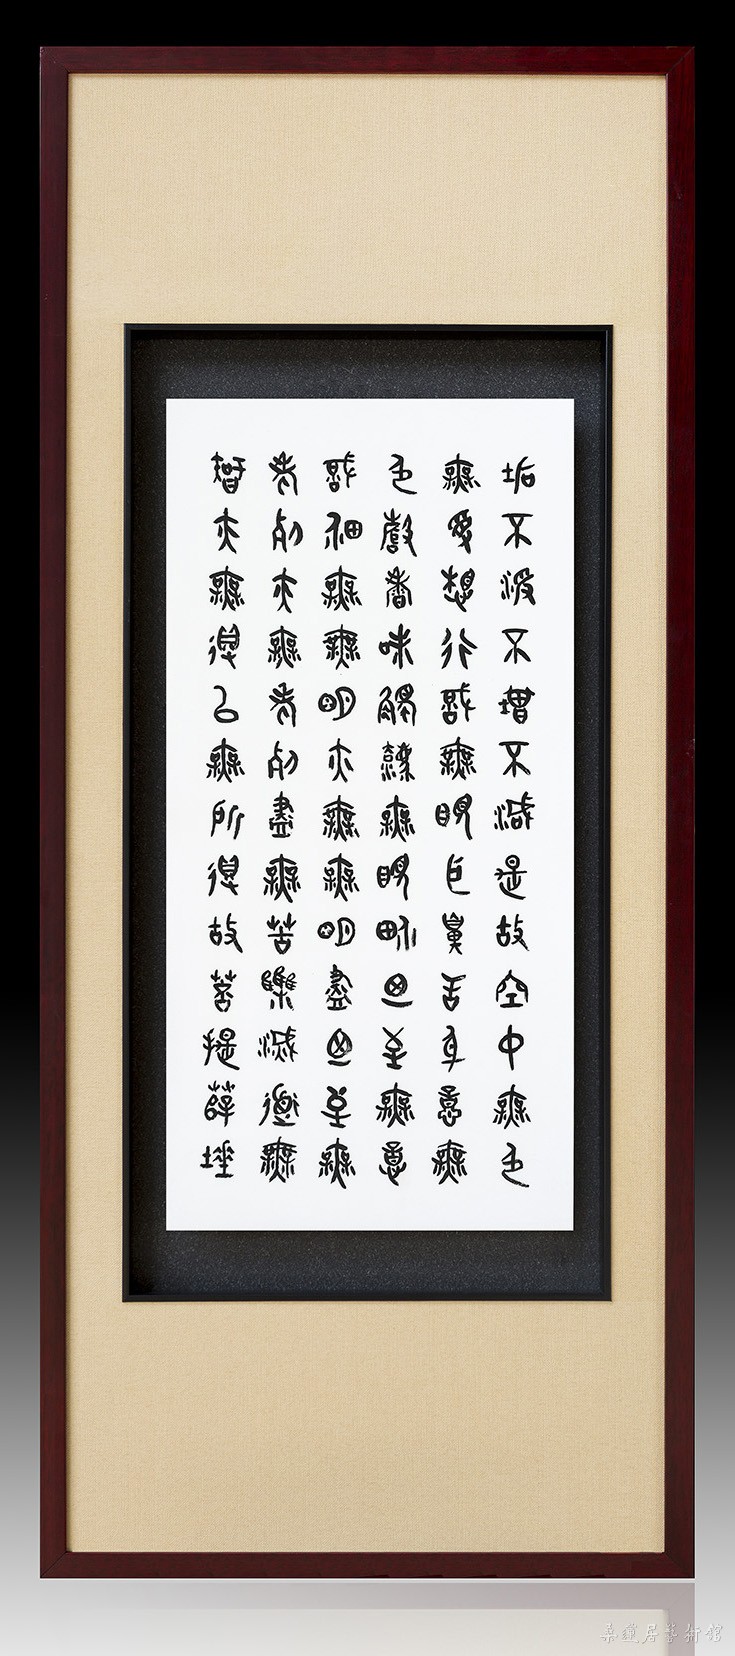 垢不淨不增不減是故空中無色
無受想行識無眼耳鼻舌身意無
色聲香味觸法無眼界乃至無意
識界無無明亦無無明盡乃至無
老死亦無老死盡無苦集滅道無
智亦無得以無所得故菩提薩埵
桑蓮居藝術館